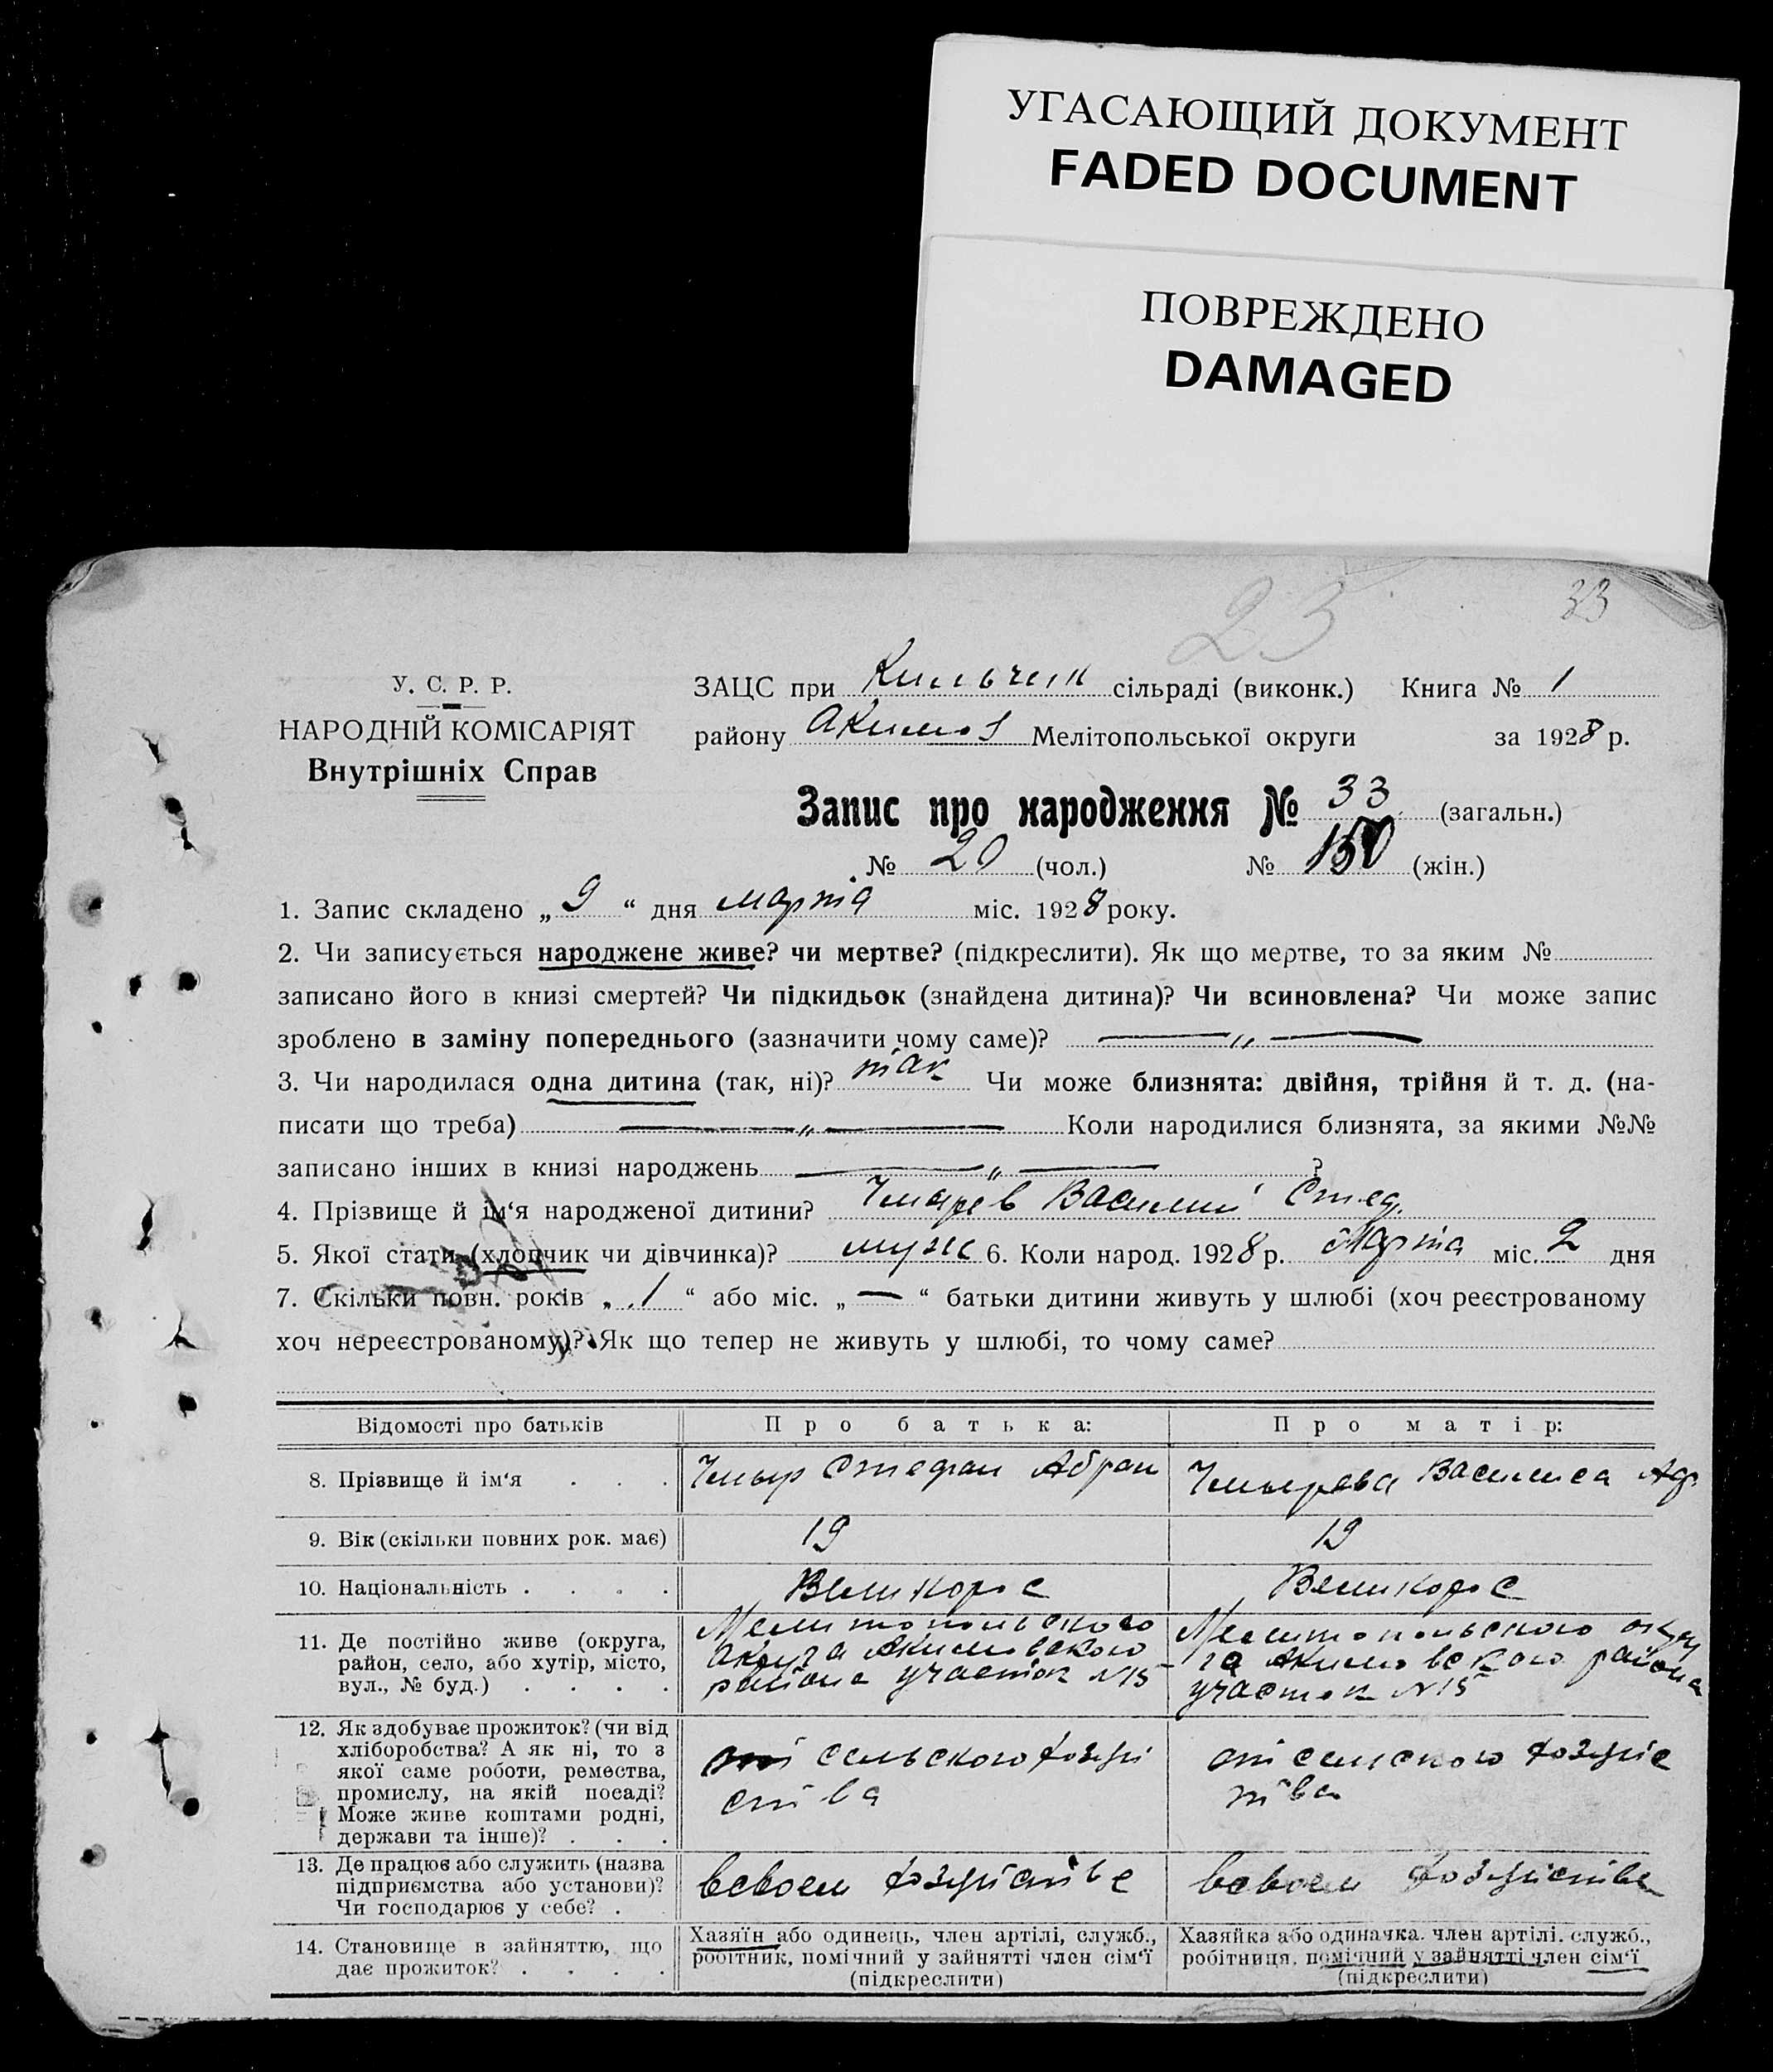 УГАСАЮЩИЙ ДОКУМЕНТ
FADED DOCUMENT
ПОВРЕЖДЕНО
DAMAGED
23
33
У. С. Р. Р.
НАРОДНІЙ КОМІСАРІЯТ
Внутрішніх Справ
ЗАЦС при сільраді (виконк.) Книга № 1
району Акимов Мелітопольської округи за 1928 р.
Запис про народження № 33 (загальн.)
№ 20 (чол.) № (жін.)
1. Запис складено „ 9 “ дня марта міс. 1928 року.
2. Чи записується народжене живе? чи мертве? (підкреслити). Як що мертве, то за яким №
записано його в книзі смертей? Чи підкидьок (знайдена дитина)? Чи всиновлена? Чи може запис
зроблено в заміну попереднього (зазначити чому саме)? — „ —
3. Чи народилася одна дитина (так, ні)? так Чи може близнята: двійня, трійня й т. д. (на-
писати що треба) — „ — Коли народилися близнята, за якими №№
записано інших в книзі народжень — „ — ?
4. Прізвище й ім‘я народженої дитини? Василий Стеф.
5. Якої стати (хлопчик чи дівчинка)? муж 6. Коли народ. 1928 р. Марта міс. 2 дня
7. Скільки повн. років „ 1 “ або міс. „ — “ батьки дитини живуть у шлюбі (хоч реєстрованому
хоч нереєстрованому)? Як що тепер не живуть у шлюбі, то чому саме?
Відомості про батьків Про батька: Про матір:
8. Прізвище й ім‘я . . . Стефан Абрам Василиса
9. Вік (скільки повних рок. має) 19 19
10. Національність . . . . Великорос Великорос
11. Де постійно живе (округа,
район, село, або хутір, місто,
вул., № буд.) . . . .
Мелитопольского
округа Акимовского
района участок №15
Мелитопольского окру
га Акимовского района
участок №15
12. Як здобуває прожиток? (чи від
хліборобства? А як ні, то з
якої саме роботи, ремества,
промислу, на якій посаді?
Може живе коштами родні,
держави та інше)? . . .
от сельского хозяй
ства
от сельского хозяйс
тва
13. Де працює або служить (назва
підприємства або установи)?
Чи господарює у себе? .
всвоем хозяйстве
всвоем хозяйстве
14. Становище в зайняттю, що
дає прожиток? . . . .
Хазяїн або одинець, член артілі, служб.,
робітник, помічний у зайнятті член сім‘ї
(підкреслити)
Хазяйка або одиначка. член артілі. служб.,
робітниця. помічний у зайнятті член сім‘ї
(підкреслити)